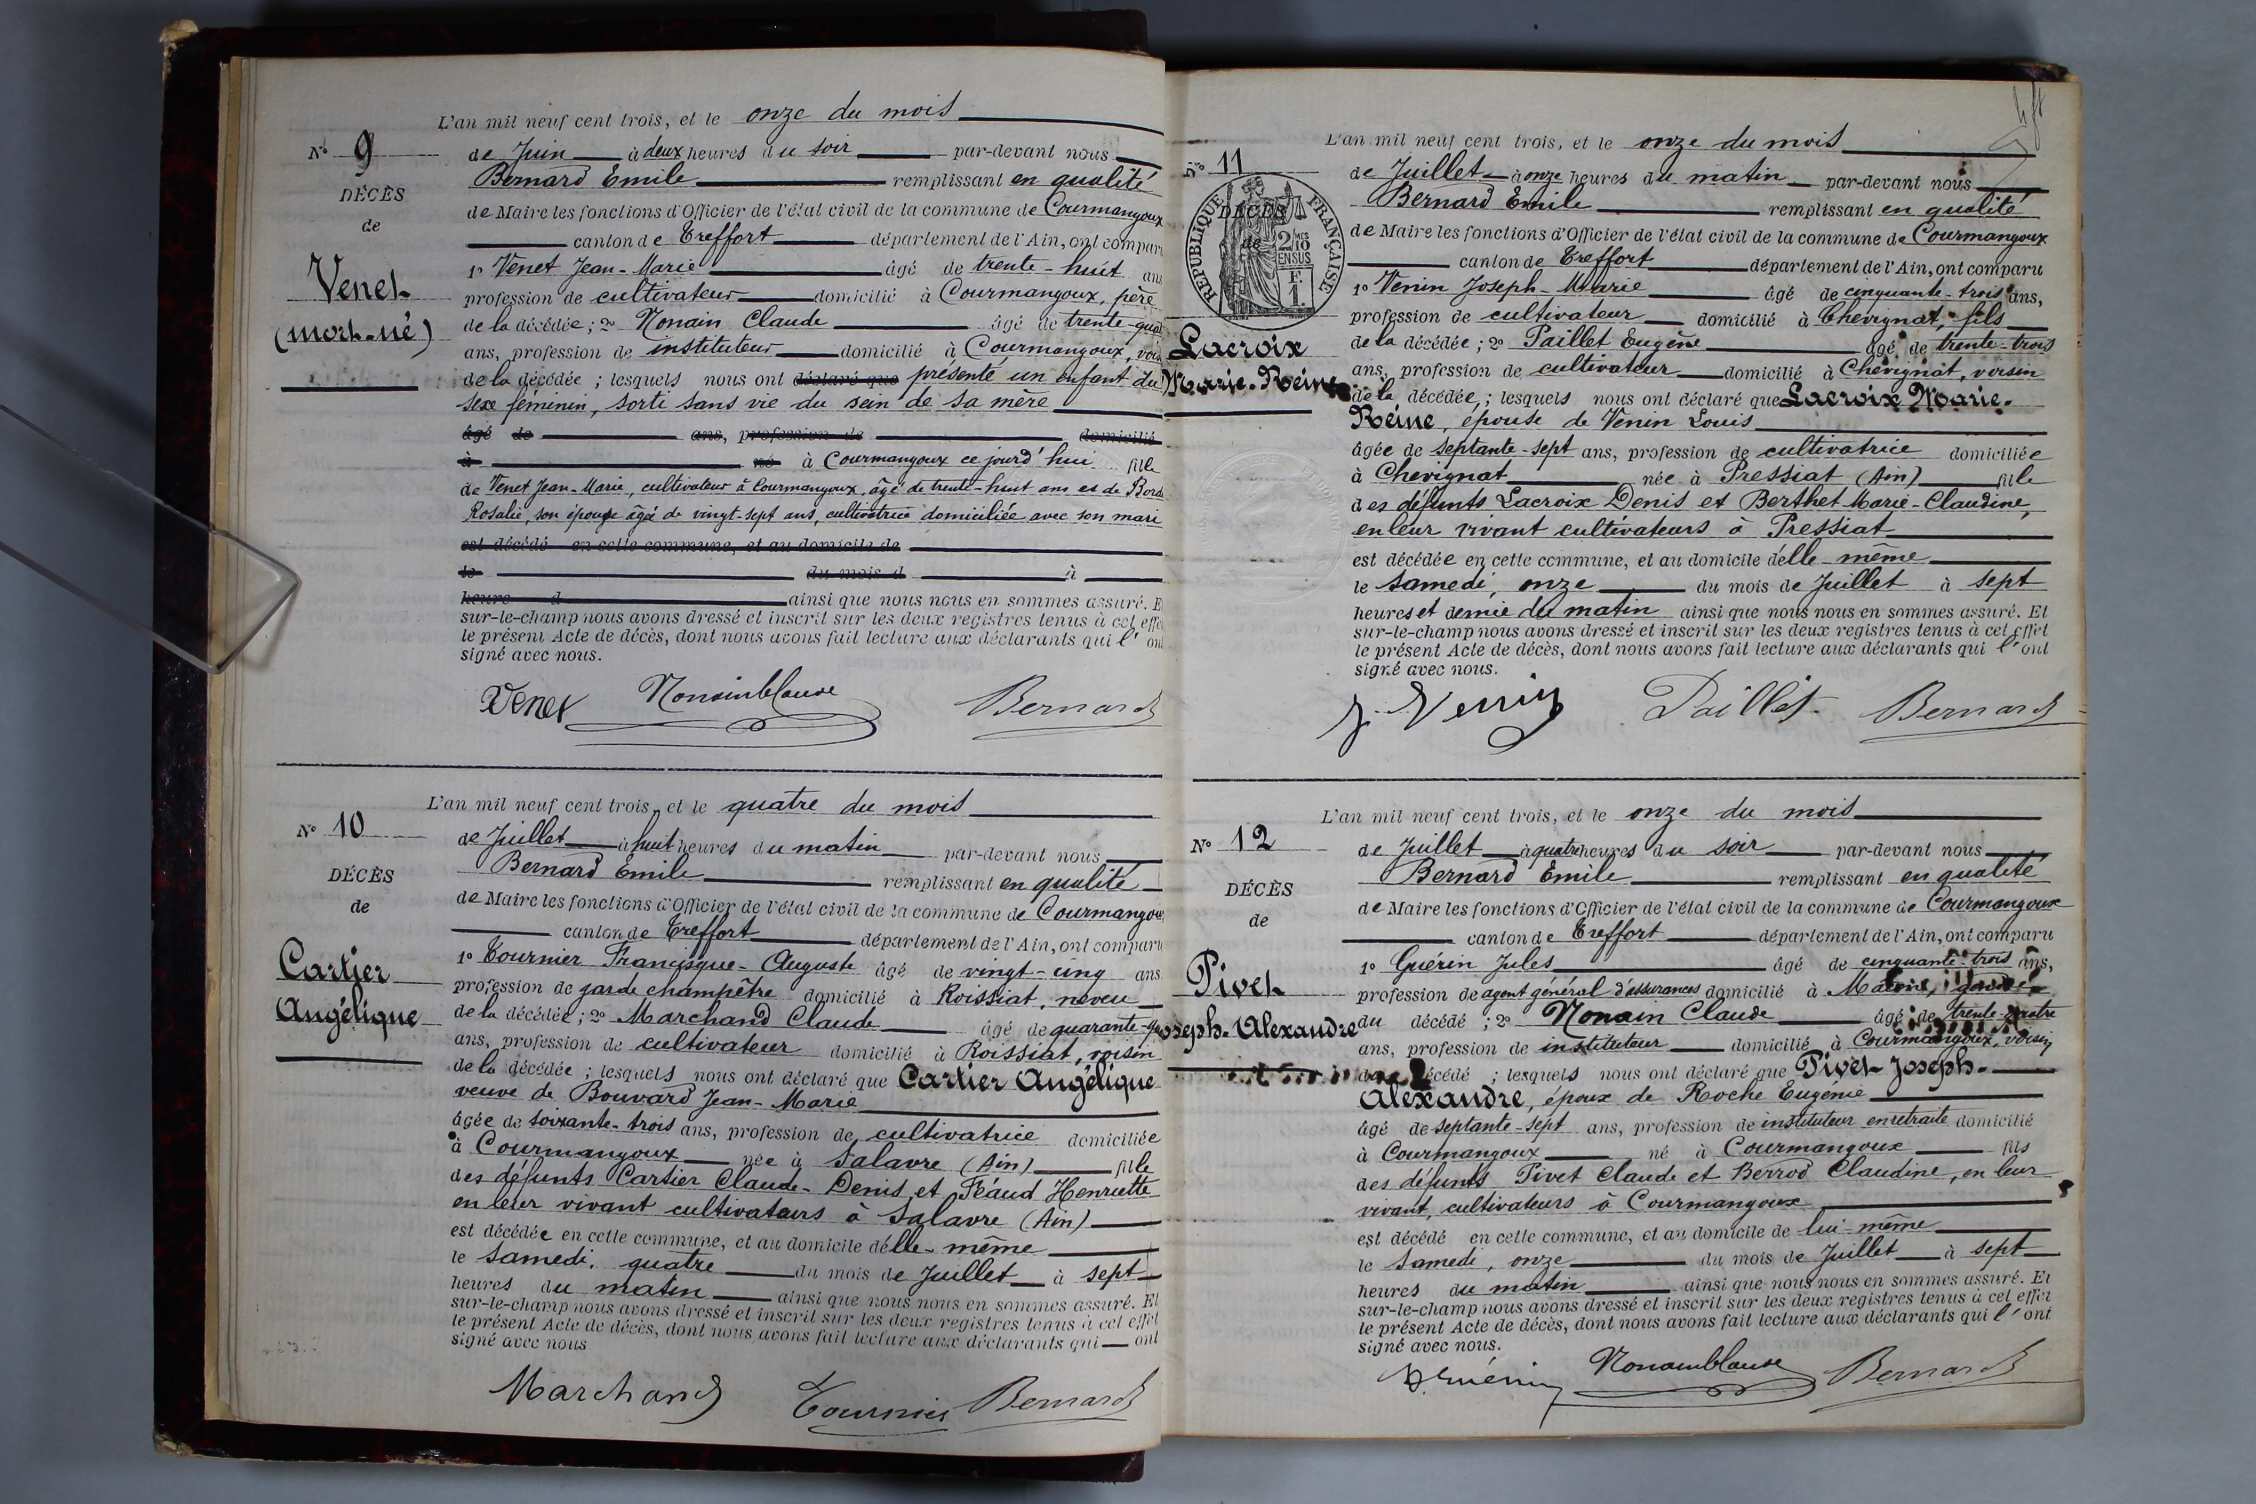 L'an mil neuf cent trois, et le onze du mois
N° 9
de Juin à deux heures du soir par-devant nous
Bernard Emile remplissant en qualité
DÉCÈS
de Maire les fonctions d'Officier de l'état civil de la commune de Courmangoux
de
canton de Treffort département de l'Ain, ont comparu
1° Venet Jean-Marie âgé de trente-huit ans
Venet
profession de cultivateur domicilié à Courmangoux, père
(mort-né)
de la décédée; 2° Nonain Claude âgé de trente-quat
ans, profession de instituteur domicilié à Courmangoux, voisi
de la décédée; lesquels nous ont déclaré que présenté un enfant du
sexe féminin, sorti sans vie du sein de sa mère
âgé de ans, profession de domicilié
à né à Courmangoux ce jourd'hui fille
de Venet Jean-Marie, cultivateur à Courmangoux, âgé de trente-huit ans et de
Rosalie, son épouse âgé de vingt-sept ans, cultivatrice domiciliée avec son mari
est décédé en cette commune, et au domicile de
le du mois d à
heure d ainsi que nous nous en sommes assuré. E
sur-le-champ nous avons dressé et inscrit sur les deux registres tenus à cet effet
le présent Acte de décès, dont nous avons fait lecture aux déclarants qui l'ont
signé avec nous.
Venet Nonain Claude Bernard
L'an mil neuf cent trois, et le quatre du mois
N° 10
de Juillet à huit heures du matin par-devant nous
Bernard Emile remplissant en qualité
DÉCÈS
de Maire les fonctions d'Officier de l'état civil de la commune de Courmangoux
de
canton de Treffort département de l'Ain, ont comparu
1° Tournier Francisque-Auguste âgé de vingt-cinq ans
Cartier
profession de garde champêtre domicilié à Roissiat, neveu
Angélique
de la décédée; 2° Marchand Claude âgé de quarante-
ans, profession de cultivateur domicilié à Roissiat, voisin
de la décédée; lesquels nous ont déclaré que Cartier Angélique
veuve de Bouvard Jean-Marie
âgée de soixante-trois ans, profession de cultivatrice domiciliée
à Courmangoux née à Salavre (Ain) fille
des défunts Cartier Claude-Denis et Féaud Henriette
en leur vivant cultivateurs à Salavre (Ain)
est décédée en cette commune, et au domicile d'elle-même
le samedi, quatre du mois de Juillet à sept
heures du matin ainsi que nous nous en sommes assuré. Et
sur-le-champ nous avons dressé et inscrit sur les deux registres tenus à cet effet
le présent Acte de décès, dont nous avons fait lecture aux déclarants qui ont
signé avec nous
Marchand Tournier Bernard
L'an mil neuf cent trois, et le onze du mois
N° 11
de Juillet à onze heures du matin par-devant nous
Bernard Emile remplissant en qualité
DÉCÈS
de
RÉPUBLIQUE FRANÇAISE
2/10 EN SUS
F. 1.
de Maire les fonctions d'Officier de l'état civil de la commune de Courmangoux
canton de Treffort département de l'Ain, ont comparu
1° Venin Joseph-Marie âgé de cinquante-trois ans,
profession de cultivateur domicilié à Chevignat, fils
Lacroix
de la décédée; 2° Paillet Eugène âgé de trente-trois
Marie-Reine
ans, profession de cultivateur domicilié à Chevignat, voisin
de la décédée; lesquels nous ont déclaré que Lacroix Marie-
Reine, épouse de Venin Louis
âgée de septante-sept ans, profession de cultivatrice domiciliée
à Chevignat née à Pressiat (Ain) fille
des défunts Lacroix Denis et Berthet Marie-Claudine,
en leur vivant cultivateurs à Pressiat
est décédée en cette commune, et au domicile d'elle-même
le samedi, onze du mois de Juillet à sept
heures et demie du matin ainsi que nous nous en sommes assuré. Et
sur-le-champ nous avons dressé et inscrit sur les deux registres tenus à cet effet
le présent Acte de décès, dont nous avons fait lecture aux déclarants qui l'ont
signé avec nous.
J. Venin Paillet Bernard
L'an mil neuf cent trois, et le onze du mois
N° 12
de Juillet à quatre heures du soir par-devant nous
Bernard Emile remplissant en qualité
DÉCÈS
de Maire les fonctions d'Officier de l'état civil de la commune de Courmangoux
de
canton de Treffort département de l'Ain, ont comparu
1° Guérin Jules âgé de cinquante-trois ans,
Pivet
profession de agent général d'assurances domicilié à
Joseph-Alexandre
du décédé; 2° Nonain Claude âgé de trente-quatre
ans, profession de instituteur domicilié à Courmangoux, voisin
du décédé; lesquels nous ont déclaré que Pivet Joseph-
Alexandre, époux de Roche Eugénie
âgé de septante-sept ans, profession de instituteur en retraite domicilié
à Courmangoux né à Courmangoux fils
des défunts Pivet Claude et Berrod Claudine, en leur
vivant, cultivateurs à Courmangoux
est décédé en cette commune, et au domicile de lui-même
le samedi, onze du mois de Juillet à sept
heures du matin ainsi que nous nous en sommes assuré. Et
sur-le-champ nous avons dressé et inscrit sur les deux registres tenus à cet effet
le présent Acte de décès, dont nous avons fait lecture aux déclarants qui l'ont
signé avec nous.
J. Guérin Nonain Claude Bernard